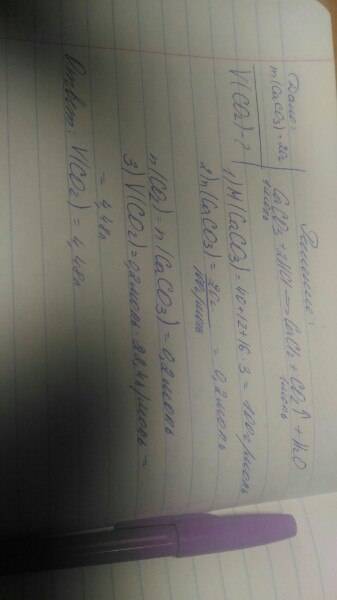 Дано:
Решение:
m(CaCO3)=20г
CaCO3+2HCl=>CaCl2+CO2↑+H2O
1моль
1моль
V(CO2)-?
1)M(CaCO3)=40+12+16·3=100г/моль
2)n(CaCO3)=20г/100г/моль=0,2моль
n(CO2)=n(CaCO3)=0,2моль
3)V(CO2)=0,2моль·22,4г/моль=
=4,48л
Ответ: V(CO2)=4,48л